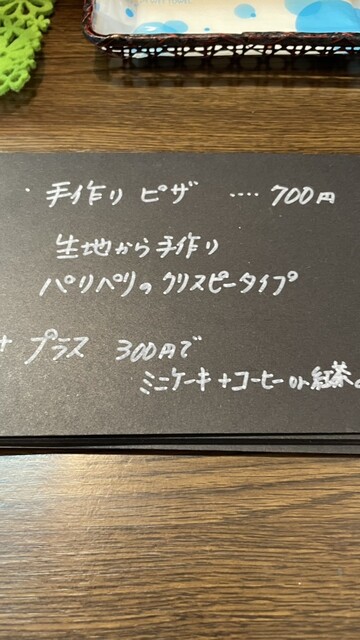 ・手作り ピザ ‥‥ 700円
生地から手作り
パリパリの クリスピータイプ
+ プラス 300円で
ミニケーキ+コーヒーor紅茶